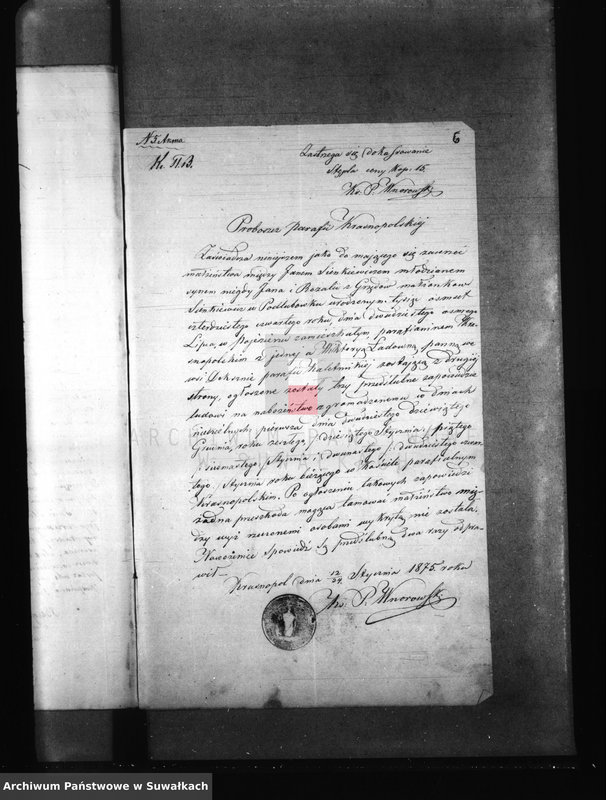 N 5 Anna
6
K. 51.B.
Zastrzega się dokasowanie
Stępla ceny kop. 15.
Ks. P. Wnorowski
Proboszcz parafii Krasnopolskiej
Zaświadcza niniejszem jako do mającego się zawrzeć
małżeństwa między Janem Sienkiewiczem młodzianem
synem niegdy Jana i Rozalii z małżonków
Sienkiewicz w Podlubowku urodzonym tysiąc osmset
czterdziestego czwartego roku, dnia dwudziestego osmego
Lipca, w zamieszkałym, parafianinem Kra-
snopolskim z jednej a Wiktoryą panną we
wsi parafii Kaletnickiej zostającą z drugiej
strony, ogłoszone zostały trzy przedślubne zapowiedzi
ludowi na nabożeństwo zgromadzonemu w dniach
niedzielnych; pierwsza dnia dwudziestego dziewiątego
Grudnia, roku zeszłego / dziesiątego Stycznia / piątego
/ siedmnastego / Stycznia i dwunastego / dwudziestego czwar-
tego / Stycznia roku bieżącego w Kościele parafialnym
Krasnopolskim. Po ogłoszeniu takowych zapowiedzi
żadna przeszkoda mogąca tamować małżeństwo mię-
dzy wyż rzeczonemi osobami wykrytą nie została.
Nowożeniec spowiedź Ś. przedślubną dwa razy odpra-
wił —
Krasnopol dnia 12/24 Stycznia 1875 roku
Ks. P. Wnorowski
Archiwum Państwowe w Suwałkach